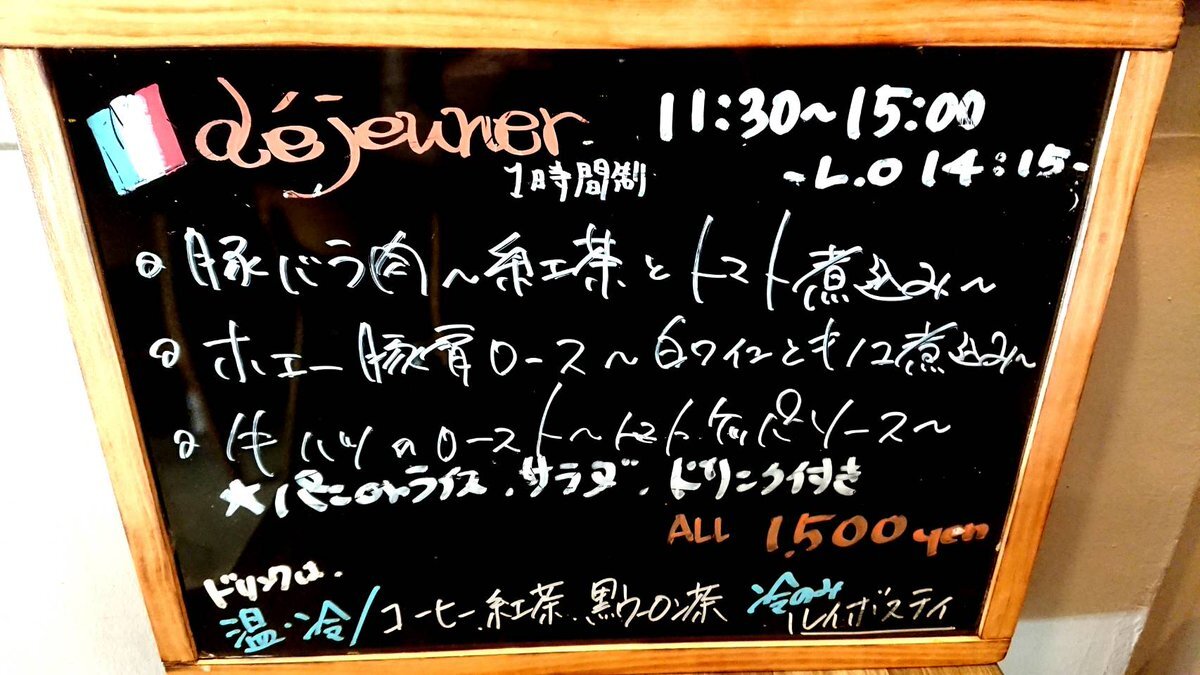 déjeuner 11:30~15:00
1時間制 -L.O 14:15-
豚バラ肉~紅茶とトマト煮込み~
ホエー豚肩ロース~白ワインともに煮込み~
牛ハツのロースト~トマトケッパソース~
★パンorライス.サラダ.ドリンク付き
ALL 1,500yen
ドリンクは.
温・冷/コーヒー.紅茶.黒ウーロン茶 冷のみ ルイボスティ